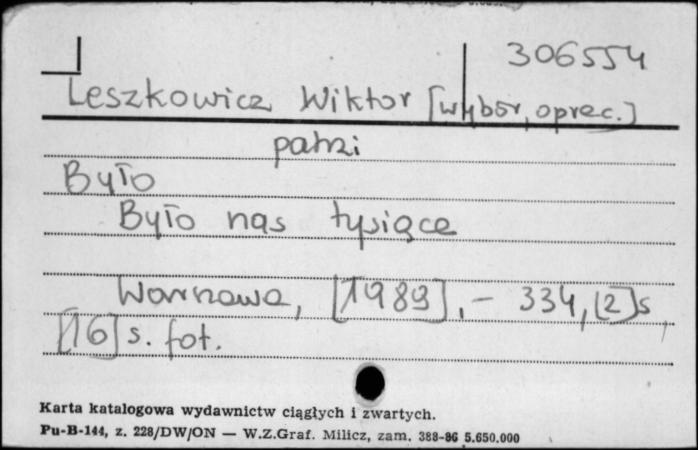 306554
Leszkowicz Wiktor [wybór, oprac.]
patrz
Było
Było nas tysiące
Warszawa, [1989], - 334, [2] s,
[16] s. fot.
Karta katalogowa wydawnictw ciągłych i zwartych.
Pu-B-144, z. 228/DW/ON — W.Z.Graf. Milicz, zam. 388-86 5.650.000